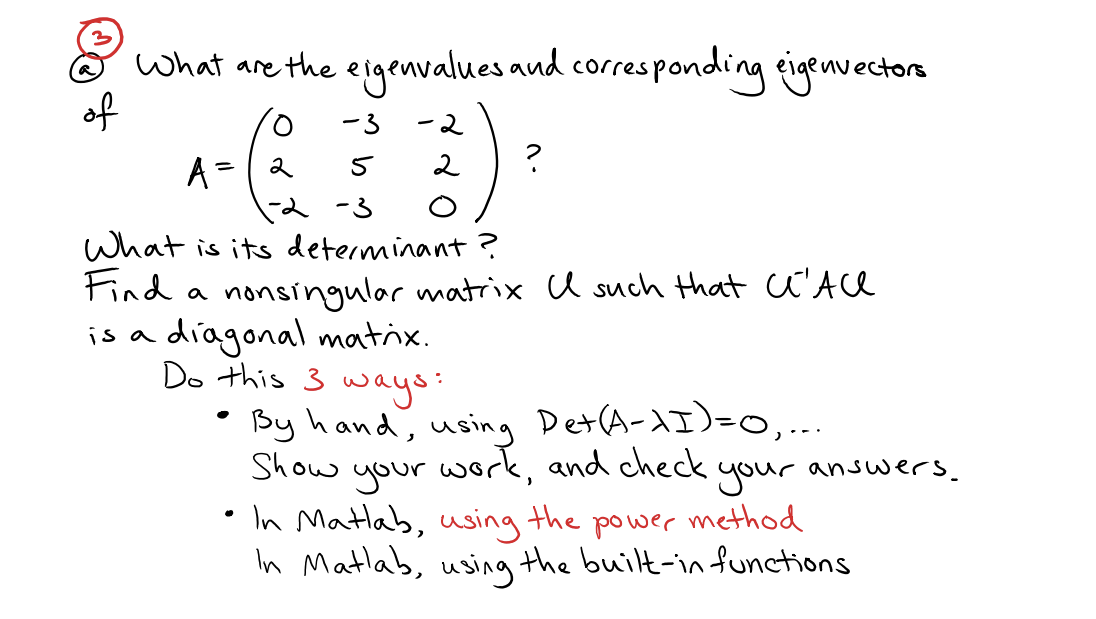 3
a What are the eigenvalues and corresponding eigenvectors
of
0 -3 -2
A = 2 5 2 ?
-2 -3 0
What is its determinant?
Find a nonsingular matrix U such that U⁻¹AU
is a diagonal matrix.
Do this 3 ways:
• By hand, using Det(A-λI)=0,...
Show your work, and check your answers.
• In Matlab, using the power method
In Matlab, using the built-in functions